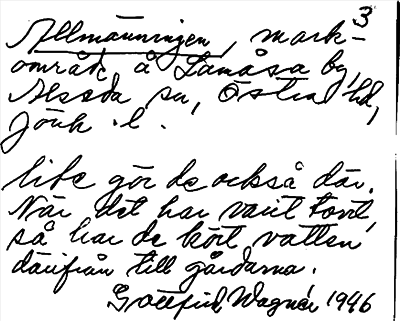 3
Allmänningen, mark-
område å Lanåsa by,
Alseda sn, Östra hd,
Jönk. l.
life gör de också där.
När det har varit torrt,
så har de kört vatten
därifrån till gårdarna.
Gottfrid Wagnér 1946